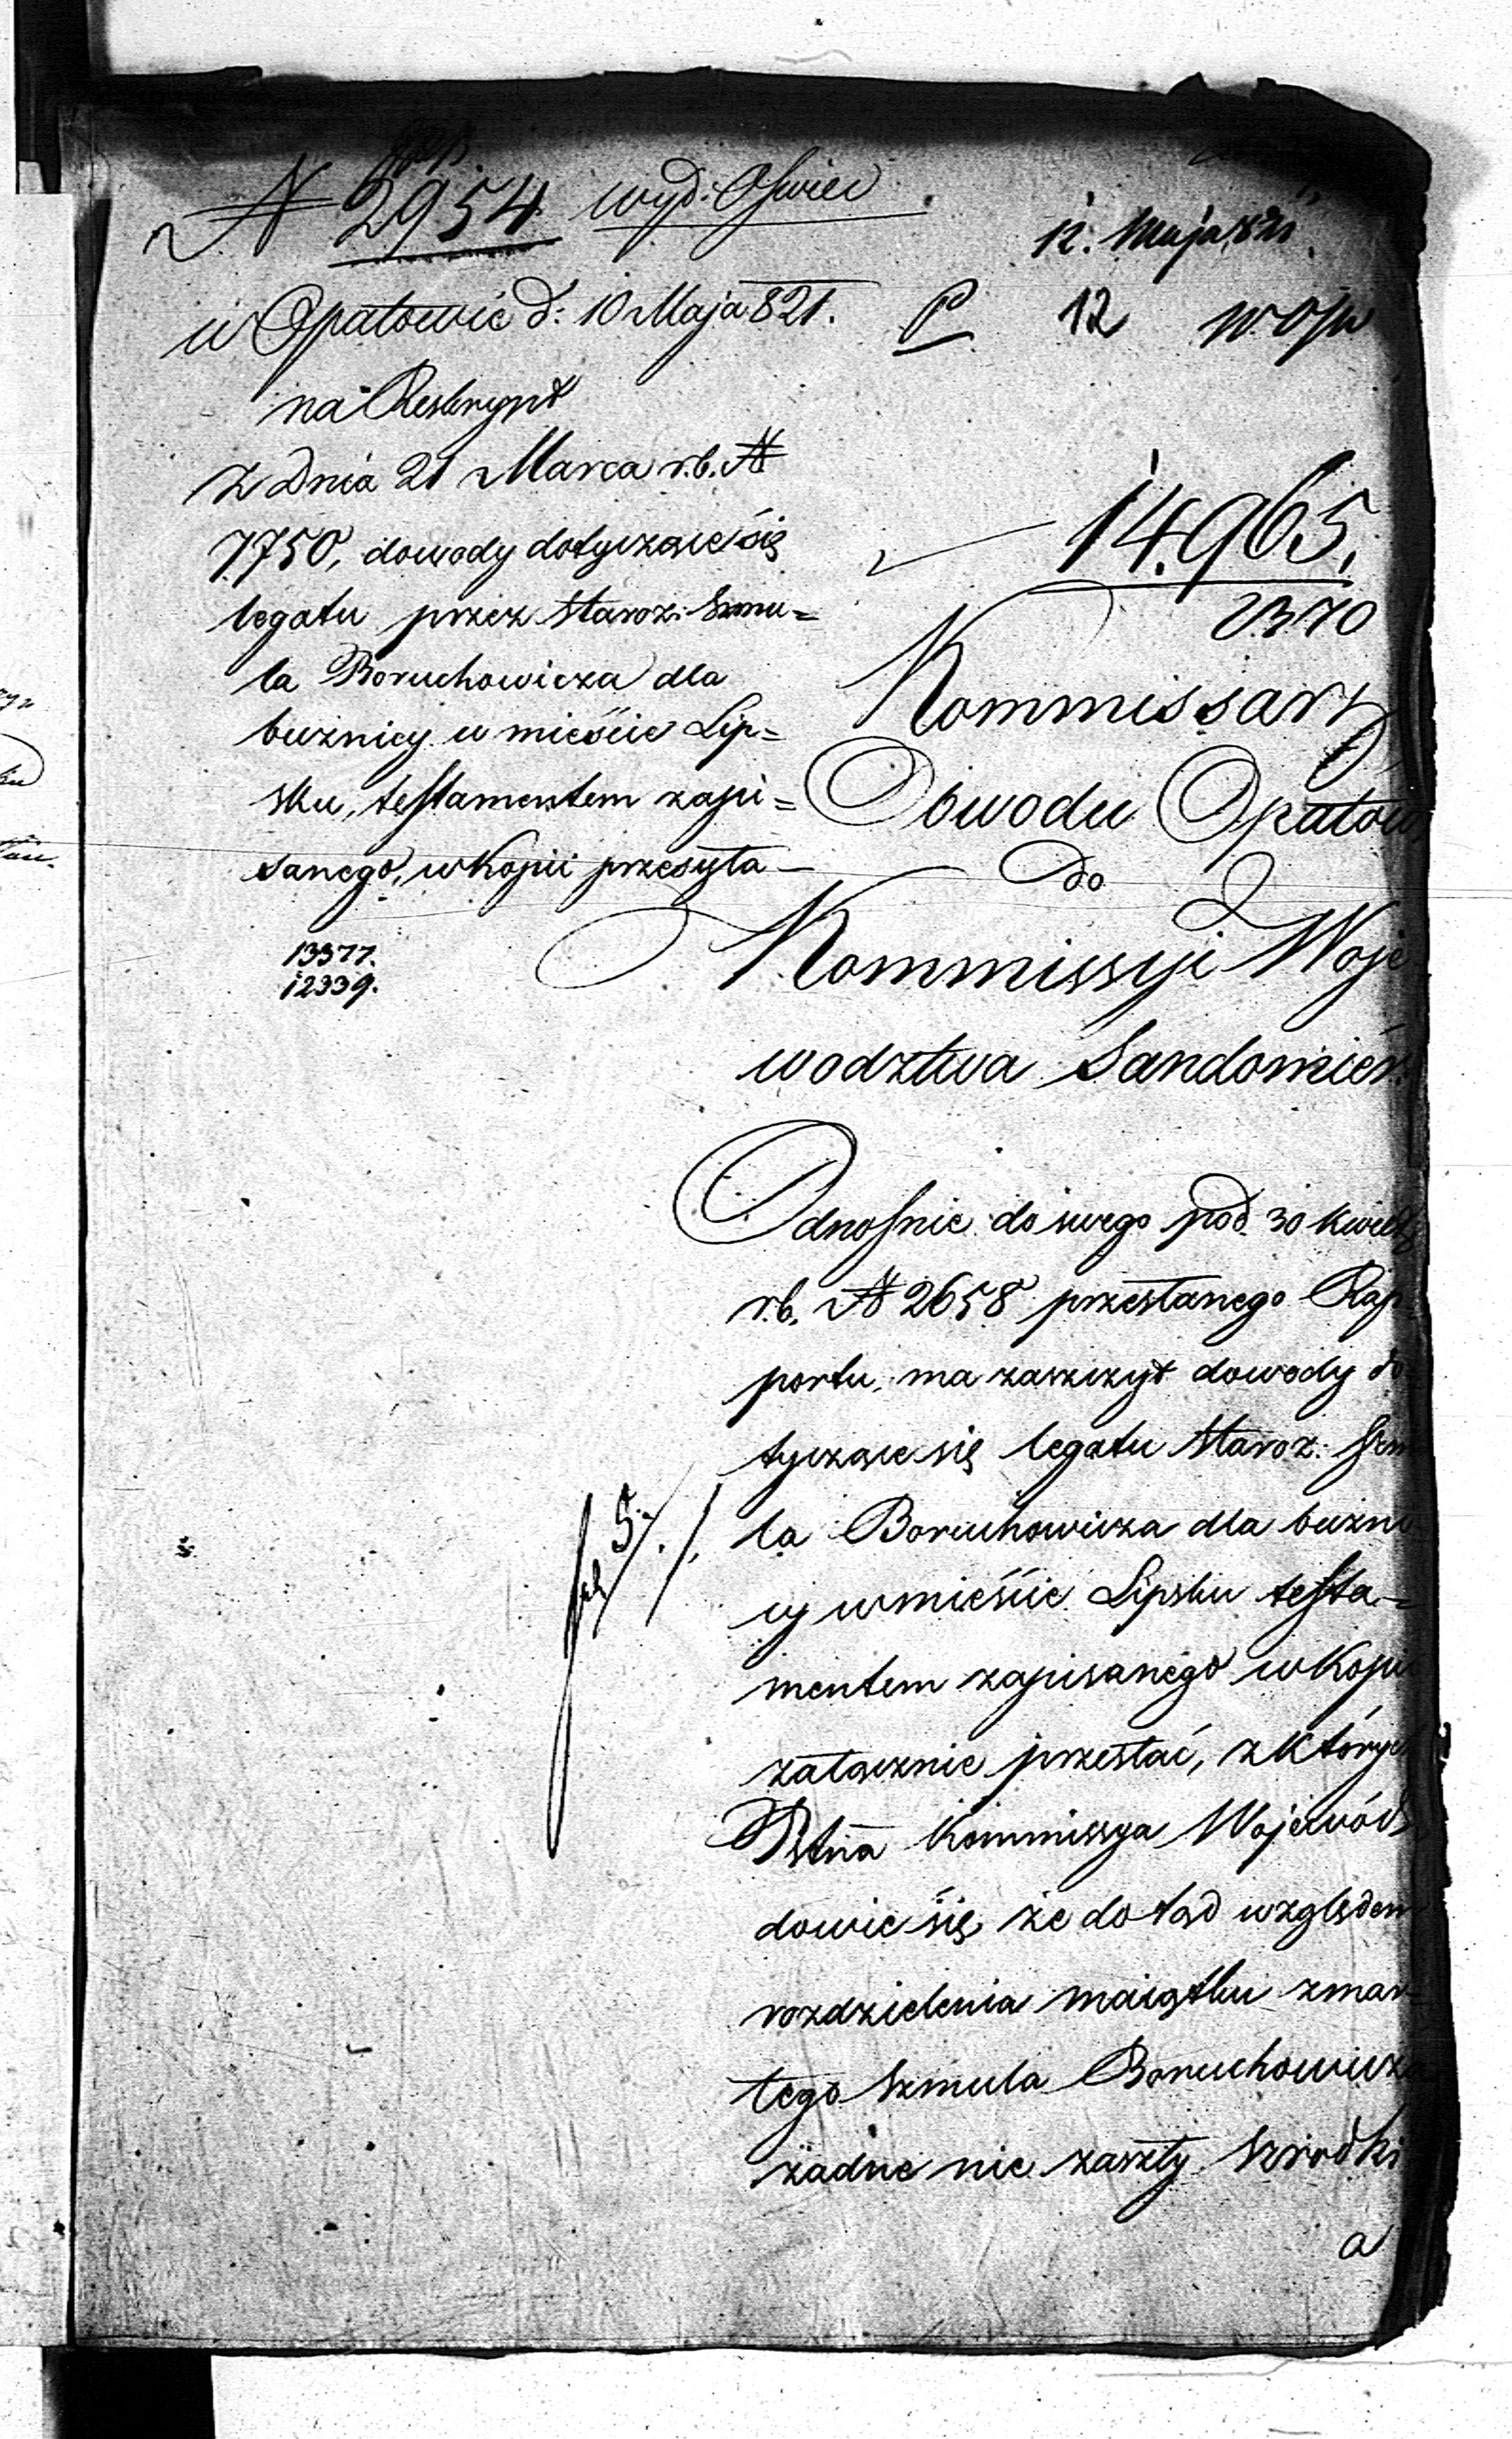 N 2954 wyd: Oswiec
12. Maja 821
w Opatowie d: 10 Maja 821.
12
na Reskrypt
z dnia 21 Marca r.b. N
7750, dowody dotyczące się
legatu przez Staroz: Szmu=
la Boruchowicza dla
bużnicy w mieście Lip=
sku, testamentem zapi=
sanego, w Kopii przesyła —
13377.
12339.
14.965.
2370
Kommissarz
Obwodu Opatow
Do
Kommissyi Woje
wodztwa Sandomier.
Odnośnie do swego pod 30 Kwiet
r.b. N 2658 przesłanego Rap
portu, ma zaszczyt dowody do
tyczące się legatu Staroz: Szm
la Boruchowicza dla bużni
cy w mieście Lipsku testa=
mentem zapisanego w Kopii
załącznie przesłać, z których
Kommissya Wojewódz
dowie się, że dotąd względem
rozdzielenia maiątku zmar=
łego Szmula Boruchowicza
żadne nie zaszły szrodki
a